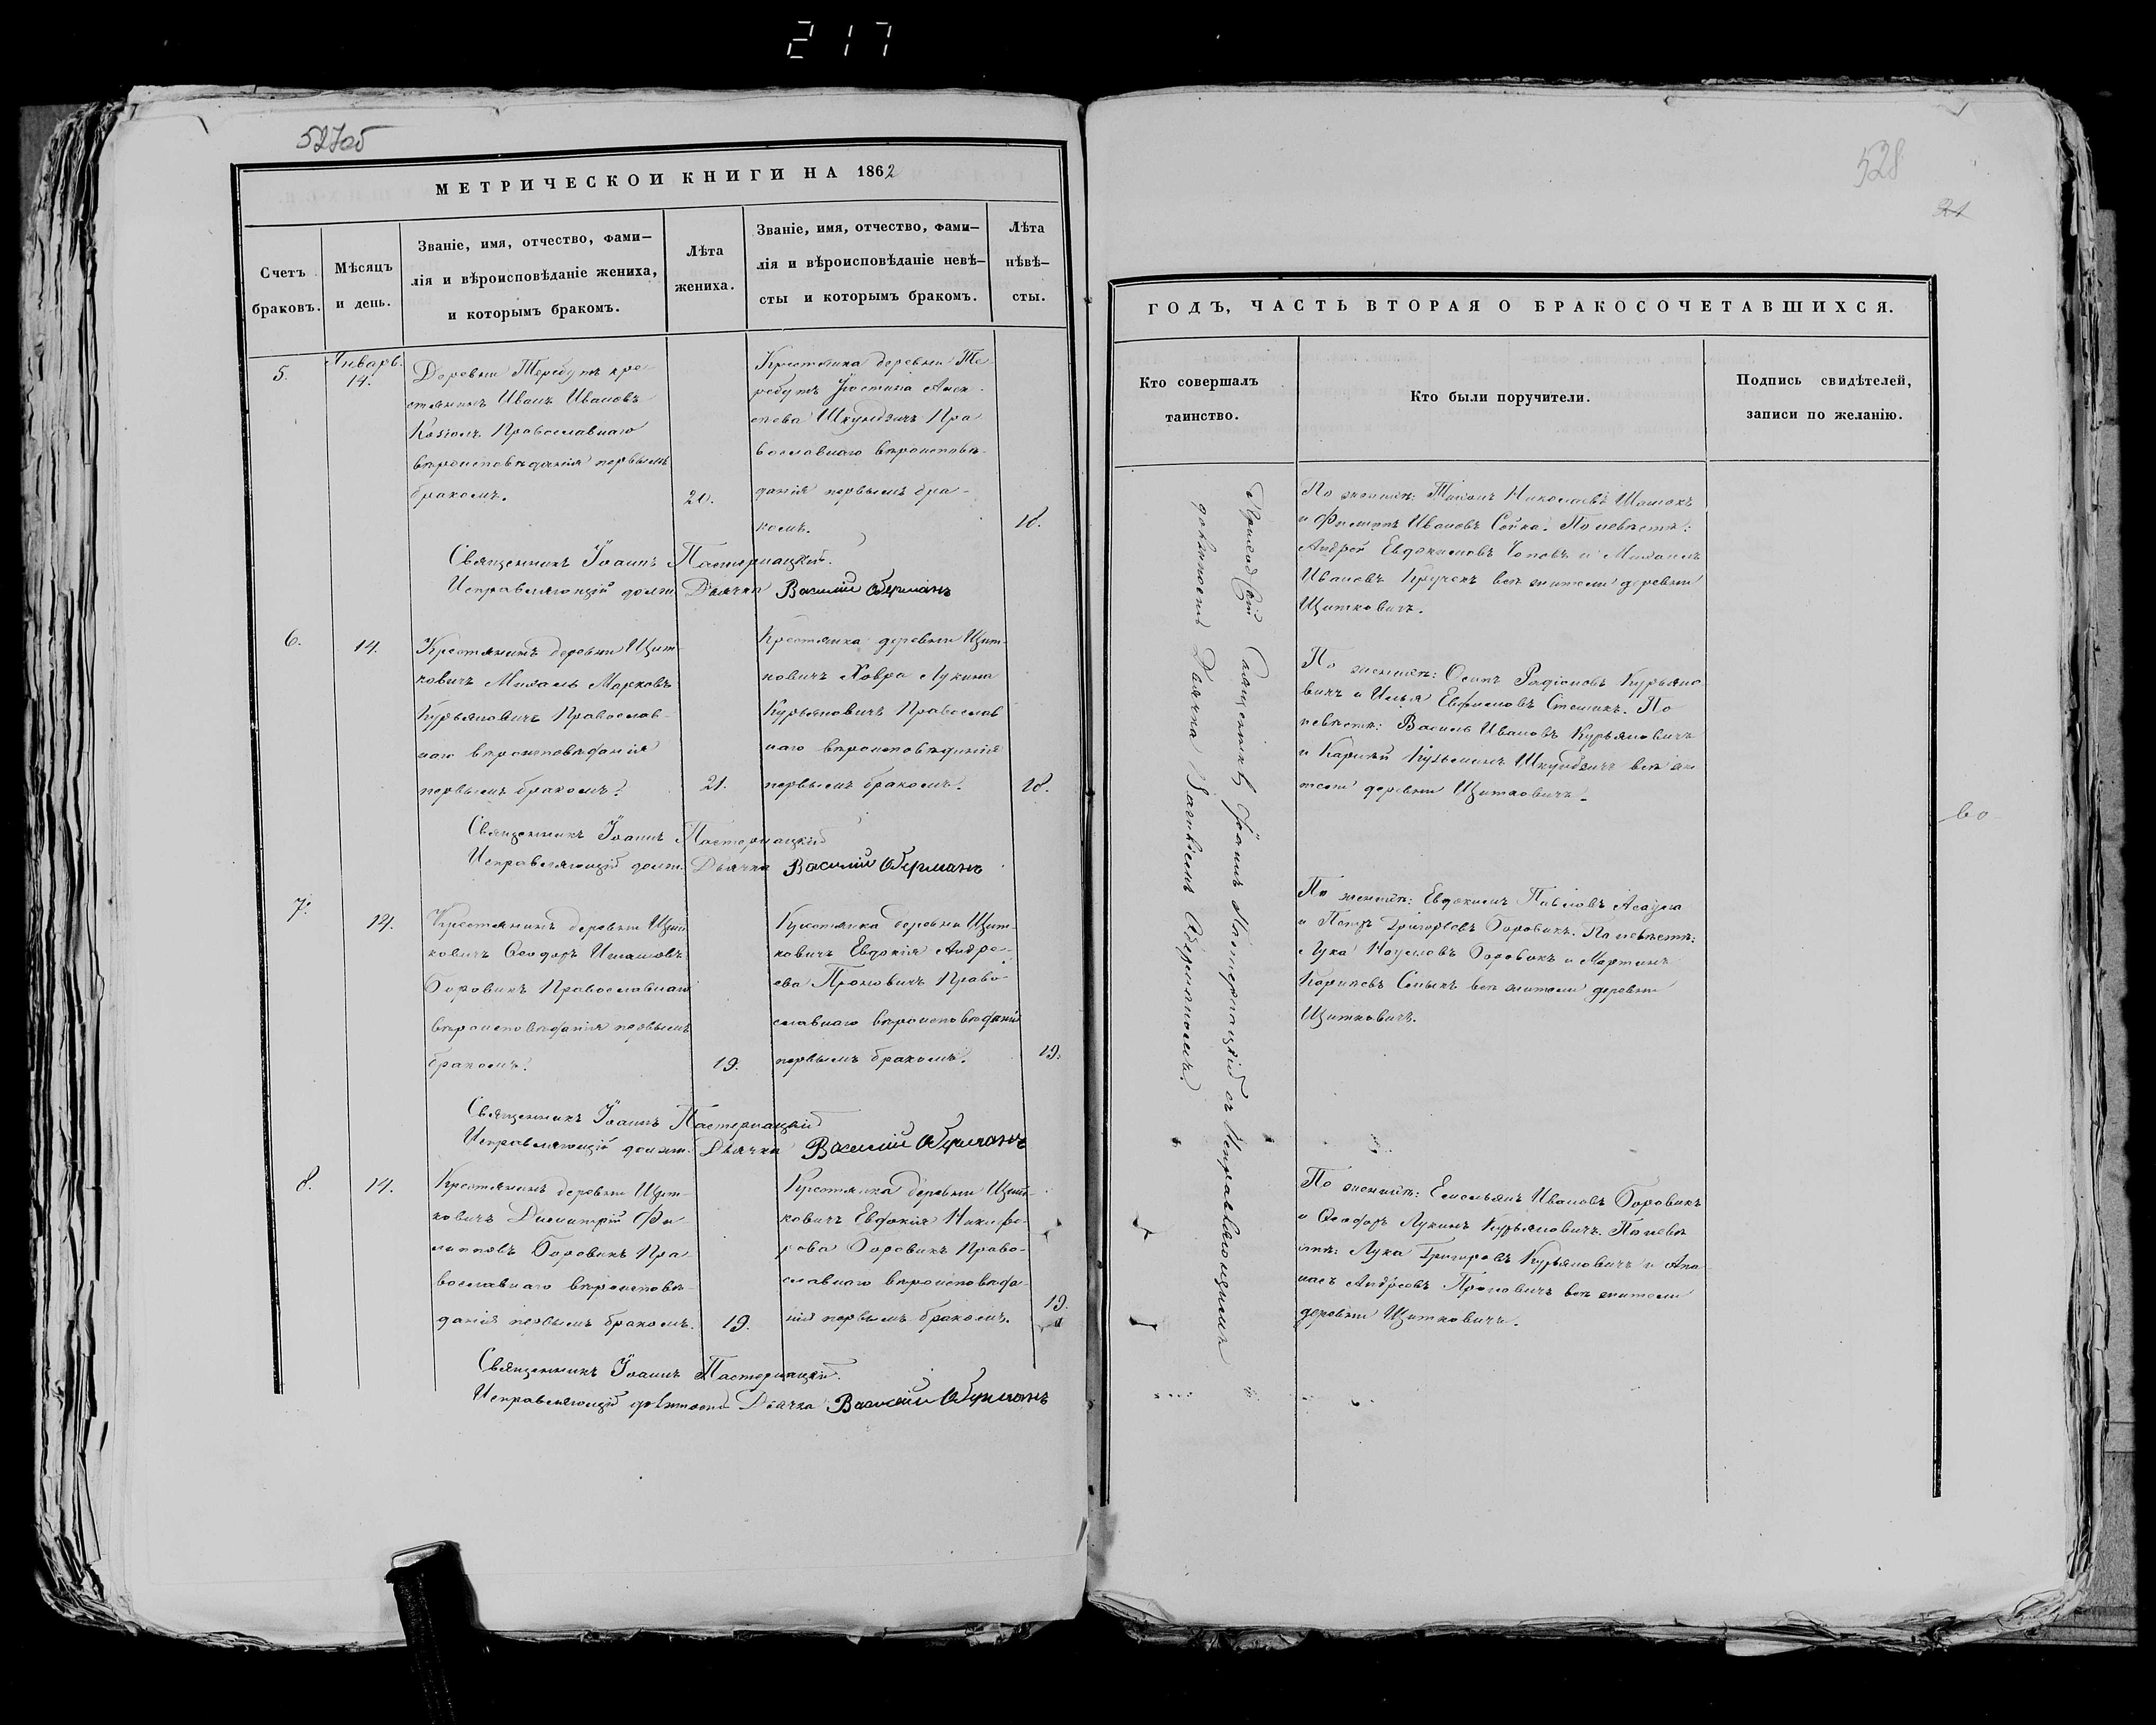 217
527об
МЕТРИЧЕСКОЙ КНИГИ НА 1862
Счетъ
браковъ.
Мѣсяцъ
и день.
Званіе, имя, отчество, фами–
лія и вѣроисповѣданіе жениха,
и которымъ бракомъ.
Лѣта
жениха.
Званіе, имя, отчество, фами–
лія и вѣроисповѣданіе невѣ–
сты и которымъ бракомъ.
Лѣта
нѣвѣ–
сты.
5.
Январь.
14.
Деревни Теребутъ кре-
стянинъ Иванъ Ивановъ
Православнаго
вѣроисповѣданія первымъ
бракомъ.
20.
Крестянка деревни Те-
ребутъ Устина
Шкумбичъ Пра
вославнаго вѣроисповѣ-
данія первымъ бра-
комъ.
18.
Священникъ Іоаннъ Пастернацкій.
Исправляющій долж. Дьячка Василій Оберманъ
6.
14.
Крестянинъ деревни Щит-
ковичъ Михаль Марковъ
Курьяновичъ Православ-
наго вѣроисповѣданія
первымъ бракомъ.
21.
Крестянка деревни Щит-
ковичъ Ховра Лукина
Курьяновичъ Православ
наго вѣроисповѣданія
первымъ бракомъ.
18.
Священникъ Іоаннъ Пастернацкій
Исправляющій долж. Дьячка Василій Оберманъ
7.
14.
Крестянинъ деревни Щит
ковичъ Ѳеодоръ Игнатовъ
Боровикъ Православнаго
вѣроисповѣданія первымъ
бракомъ.
19.
Крестянка деревни Щит-
ковичъ Евдокія Андре-
ева Пронович Право-
славнаго вѣроисповѣданія
первымъ бракомъ.
19.
Священникъ Іоаннъ Пастернацкій
Исправляющій должн. Дьячка Василій Оберманъ
8.
14.
Крестянинъ деревни Щит-
ковичъ Димитрій Фи-
липповъ Боровикъ Пра
вославнаго вѣроисповѣ-
данія первымъ бракомъ.
19.
Крестянка деревни Щит-
ковичъ Евдокія Никифо-
рова Боровикъ Право-
славнаго вѣроисповѣда-
нія первымъ бракомъ.
19.
Священникъ Іоаннъ Пастернацкій.
Исправляющій должность Дьячка Василій Оберманъ
528
21
ГОДЪ, ЧАСТЬ ВТОРАЯ О БРАКОСОЧЕТАВШИХСЯ.
Кто совершалъ
таинство.
Кто были поручители.
Подпись свидѣтелей,
записи по желанію.
Приходскій Священникъ Іоаннъ Пастернацкій съ Исправляющимъ
должность Дьячка Василіемъ Оберманомъ.
По женихѣ: Николаевъ
и Филипъ Ивановъ Сойка. По невѣстѣ:
Андрей Евдокимовъ и Михаилъ
Ивановъ Кручокъ всѣ жители деревни
Щитковичъ.
По женихѣ: Осипъ Радіоновъ Курьяно
вичъ и Илья Евфимовъ По
невѣстѣ: Василь Ивановъ Курьяновичъ
и Карпѣй Кузьминъ Шкумбичъ всѣ жи
тели деревни Щитковичъ.
во
По женихѣ: Евдокимъ Павловъ Асаула
и Петръ Григорьевъ Боровикъ. По невѣстѣ:
Лука Наумовъ Боровикъ и Мартинъ
всѣ жители деревни
Щитковичъ.
По женихѣ: Емельянъ Ивановъ Боровикъ
и Ѳеодоръ Лукинъ Курьяновичъ. По невѣ
стѣ: Лука Григоровъ Курьяновичъ и Апа-
насъ Андреевъ Пронович всѣ жители
деревни Щитковичъ.